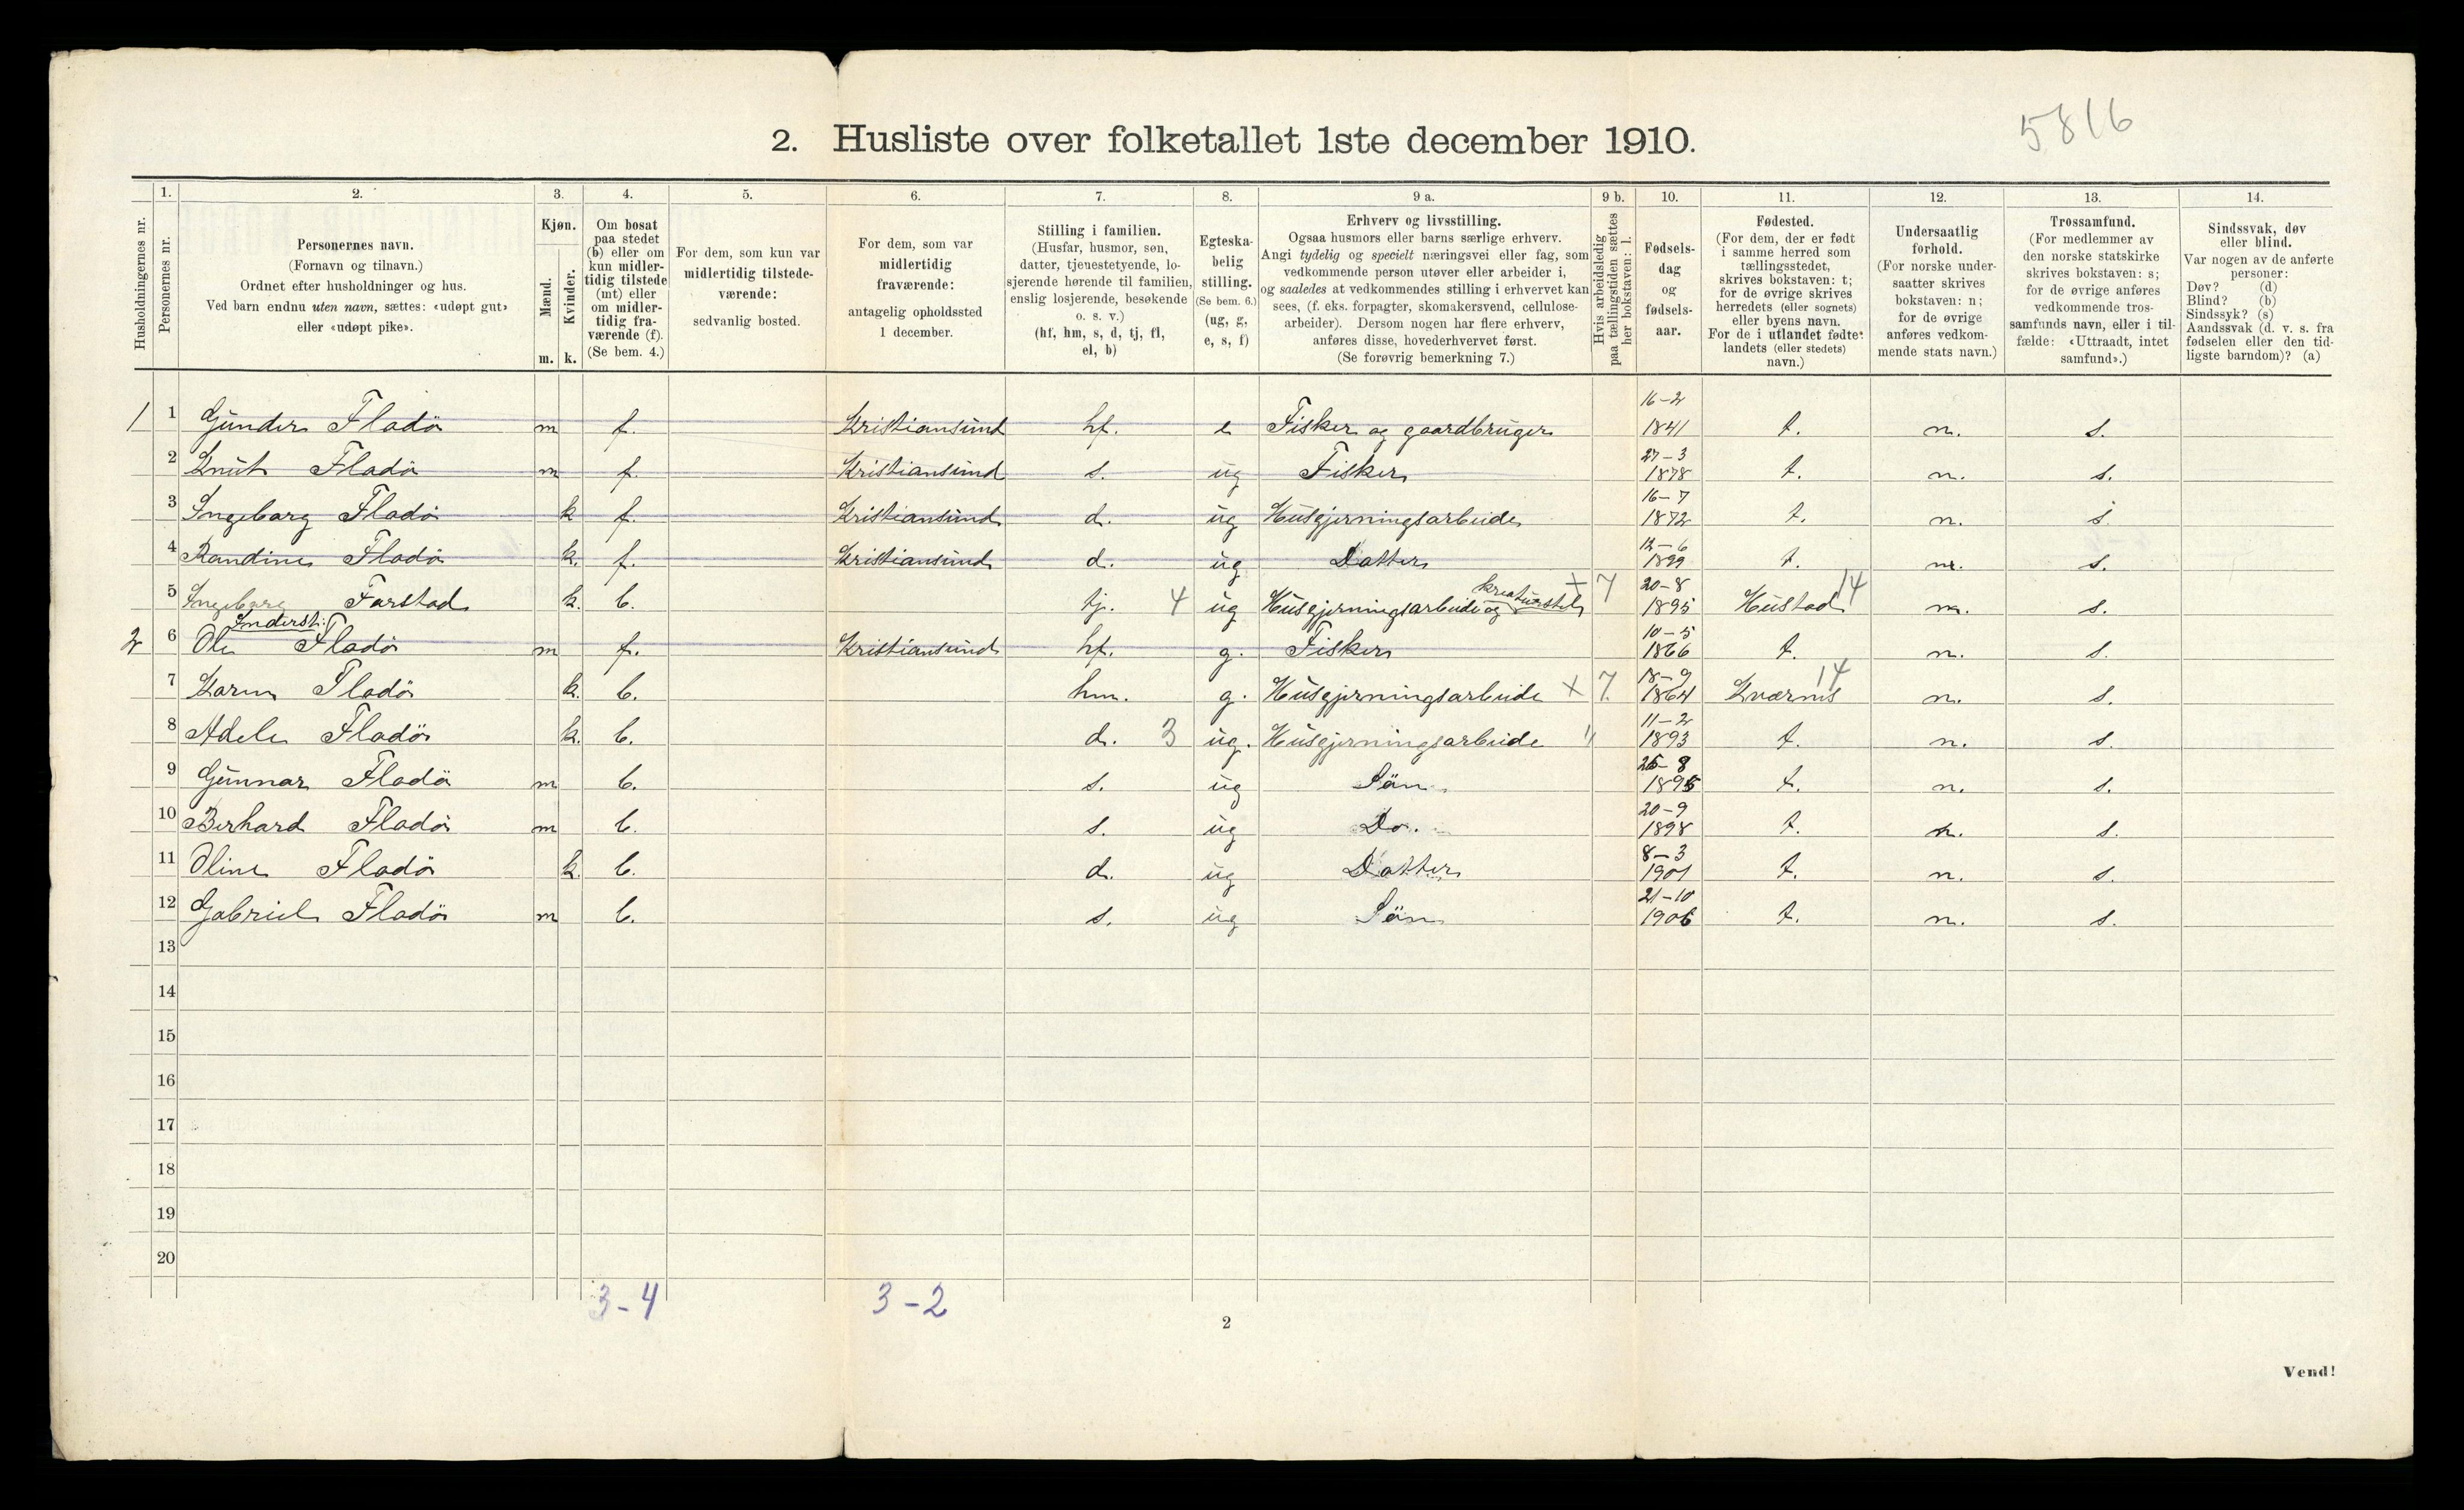 5816
2. Husliste over folketallet 1ste december 1910.
1. 2. 3. 4. 5. 6. 7. 8. 9 a. 9 b. 10. 11. 12. 13. 14.
Husholdningernes nr.
Personernes nr.
Personernes navn.
(Fornavn og tilnavn.)
Ordnet efter husholdninger og hus.
Ved barn endnu uten navn, sættes: «udøpt gut»
eller «udøpt pike».
Kjøn.
Mænd.
Kvinder.
m. k.
Om bosat
paa stedet
(b) eller om
kun midler-
tidig tilstede
(mt) eller
om midler-
tidig fra-
værende (f).
(Se bem. 4.)
For dem, som kun var
midlertidig tilstede-
værende:
sedvanlig bosted.
For dem, som var
midlertidig
fraværende:
antagelig opholdssted
1 december.
Stilling i familien.
(Husfar, husmor, søn,
datter, tjenestetyende, lo-
sjerende hørende til familien,
enslig losjerende, besøkende
o. s. v.)
(hf, hm, s, d, tj, fl,
el, b)
Egteska-
belig
stilling.
(Se bem. 6.)
(ug, g,
e, s, f)
Erhverv og livsstilling.
Ogsaa husmors eller barns særlige erhverv.
Angi tydelig og specielt næringsvei eller fag, som
vedkommende person utøver eller arbeider i,
og saaledes at vedkommendes stilling i erhvervet kan
sees, (f. eks. forpagter, skomakersvend, cellulose-
arbeider). Dersom nogen har flere erhverv,
anføres disse, hovederhvervet først.
(Se forøvrig bemerkning 7.)
Hvis arbeidsledig
paa tællingstiden sættes
her bokstaven: l.
Fødsels-
dag
og
fødsels-
aar.
Fødested.
(For dem, der er født
i samme herred som
tællingsstedet,
skrives bokstaven: t;
for de øvrige skrives
herredets (eller sognets)
eller byens navn.
For de i utlandet fødte:
landets (eller stedets)
navn.)
Undersaatlig
forhold.
(For norske under-
saatter skrives
bokstaven: n;
for de øvrige
anføres vedkom-
mende stats navn.)
Trossamfund.
(For medlemmer av
den norske statskirke
skrives bokstaven: s;
for de øvrige anføres
vedkommende tros-
samfunds navn, eller i til-
fælde: «Uttraadt, intet
samfund».)
Sindssvak, døv
eller blind.
Var nogen av de anførte
personer:
Døv? (d)
Blind? (b)
Sindssyk? (s)
Aandssvak (d. v. s. fra
fødselen eller den tid-
ligste barndom)? (a)
1 1 Gunder Fladö m f. Kristiansund hf. e Fisker og gaardbruger 16-2 1841 t. n. s.
2 Knut Fladö m f. Kristiansund s. ug Fisker 27-3 1878 t. n. s.
3 Ingeborg Fladö k f. Kristiansund d. ug Husgjerningsarbeide 16-7 1872 t. n. s.
4 Randine Fladö k. f. Kristiansund d. ug Datter 12-6 1899 t. n. s.
5 Ingeborg Farstad k. b. tj. 4 ug Husgjerningsarbeide og kreaturstel + 7 20-8 1895 Hustad 14 n. s.
Inderst:
2 6 Ole Fladö m f. Kristiansund hf. g. Fisker 10-5 1866 t. n. s.
7 Karen Fladö k. b. hm. g. Husgjerningsarbeide + 7. 18-9 1864 Kværnes 14 n. s.
8 Adele Fladö k. b. d. 3 ug. Husgjerningsarbeide " 11-2 1893 t. n. s.
9 Gunnar Fladö m b. s. ug Sön 26-8 1895 t. n. s.
10 Berhard Fladö m b. s. ug Do. 20-9 1898 t. n. s.
11 Oline Fladö k b. d. ug Datter 8-3 1901 t. n. s.
12 Gabriel Fladö m b. s. ug Sön 21-10 1906 t. n. s.
13
14
15
16
17
18
19
20
3-4 3-2
2
Vend!